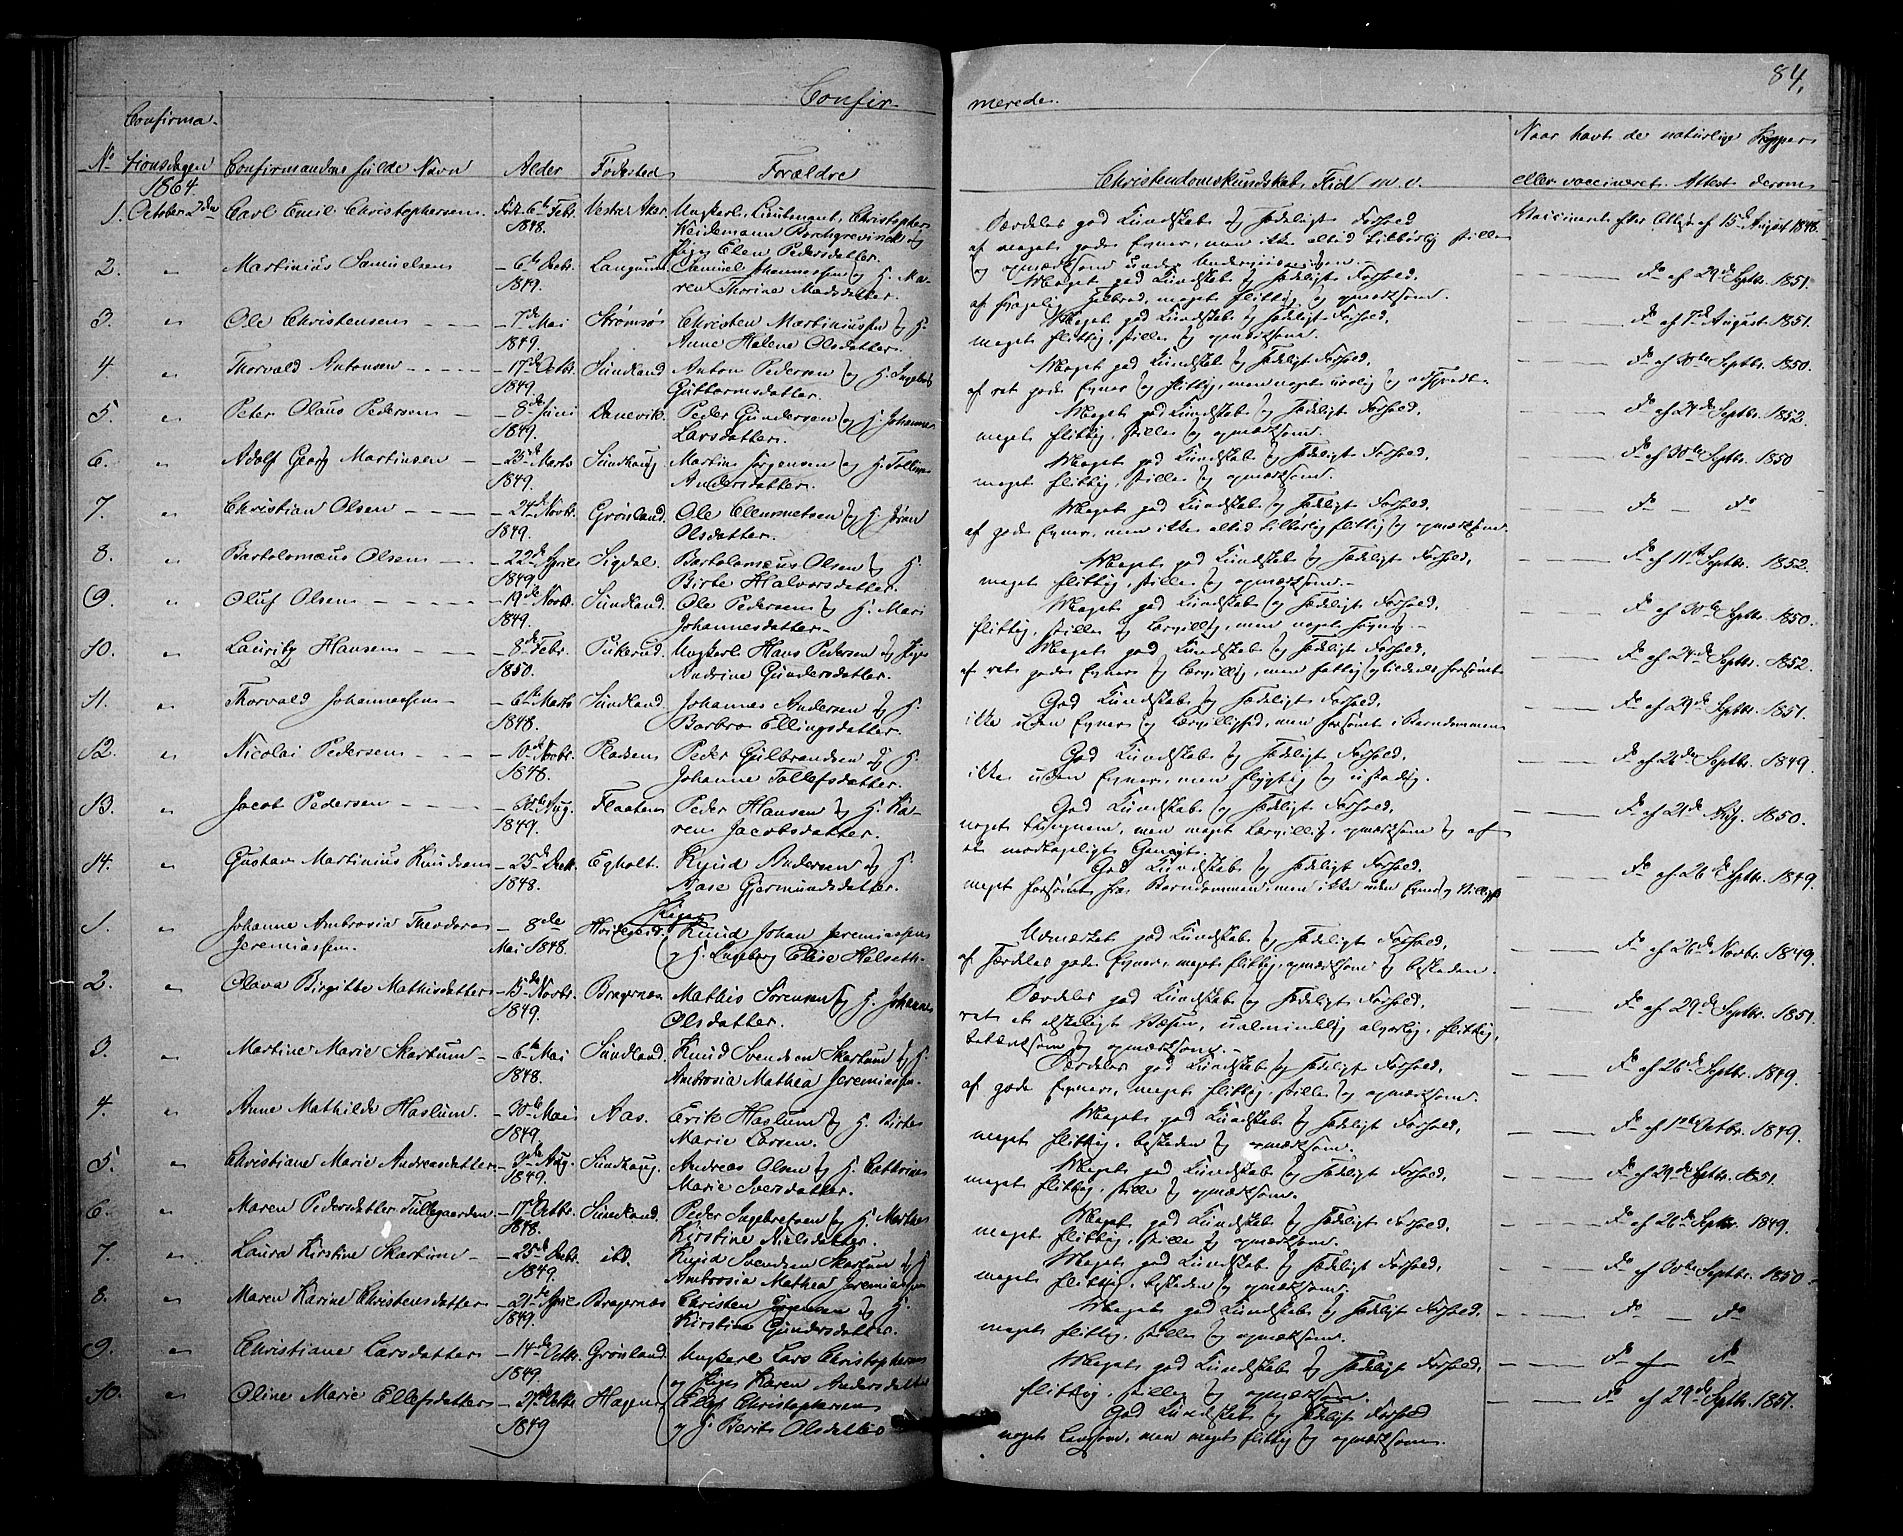 Confir-
merede.
84.
Confirma-
No tionsdagen Confirmandens fulde Navn Alder Fødested Forældre Christendomskundskab, Flid m. v. Naar havt de naturlige Kopper
eller vaccineret. Attest derom
1864.
1. October 2den Carl Emil Christophersen. Født 6te Febr. 1848. Vestre Aker Ungkarl, Lieutenant, Christopher
Weidemann Borchgrevinck og
Pige Elen Pedersdatter.
Særdeles god Kundskab og sædeligt Forhold
af meget gode Evner, men ikke altid tilbørlig stille
og opmærksom under Underviisningen.
Vaccineret efter Attest af 15de August 1848.
2. " Martinius Samuelsen - 6te Decbr. 1849. Samuel Johannessen og H. Ma-
ren Thorine Madsdatter.
Meget god Kundskab og sædeligt Forhold,
meget flittig og opmærksom.
Do af 29de Septbr. 1851.
3. " Ole Christensen - 7de Mai 1849. Strømsø Christen Martiniussen og H.
Anne Helene Olsdatter.
Meget god Kundskab og sædeligt Forhold,
meget flittig, stille og opmærksom.
Do af 7de August 1851.
4 " Thorvald Antonsen - 17de Octbr. 1849. Sundland Anton Pedersen og H. Ingebor
Guttormsdatter.
Meget god Kundskab og sædeligt Forhold,
af ret gode Evner og flittig, men noget urolig og adspredt.
Do af 30te Septbr. 1850.
5. " Peter Olaus Pedersen - 8de Juni 1849. Danevik. Peder Gundersen og H. Johanne
Larsdatter.
Meget god Kundskab og sædeligt Forhold,
meget flittig, stille og opmærksom.
Do af 24de Septbr. 1852.
6. " Adolf Georg Martinsen - 25de Marts 1849. Sundhaug Martin Jørgensen og H.
Andersdatter.
Meget god Kundskab og sædeligt Forhold,
meget flittig, stille og opmærksom.
Do af 30te Septbr. 1850
7. " Christian Olsen - 24de Novbr. 1849. Grønland. Ole Clemmetsen og H. Jøran
Olsdatter.
Meget god Kundskab og sædeligt Forhold,
af gode Evner, men ikke altid tilbørlig flittig og opmærksom.
Do - Do
8. " Bartolomæus Olsen - 22de April 1849. Sigdal. Bartolomæus Olsen og H.
Birte Halvorsdatter.
Meget god Kundskab og sædeligt Forhold,
meget flittig, stille og opmærksom.
Do af 11te Septbr. 1852.
9. " Oluf Olsen - 19de Novbr. 1849. Sundland. Ole Pedersen og H. Mari
Johannesdatter.
Meget god Kundskab og sædeligt Forhold,
flittig, stille og lærvillig, men noget
Do af 30te Septbr. 1850.
10. " Lauritz Hansen - 8de Febr. 1850. Pukerud. Ungkarl Hans Pedersen og Pige
Andrine Gundersdatter.
Meget god Kundskab og sædeligt Forhold,
af ret gode Evner og lærvillig, men fattig og tildeels forsømt
Do af 24de Septbr. 1852.
11. " Thorvald Johannessen - 6te Marts 1848. Sundland. Johannes Andersen og H.
Barbro Ellingsdatter.
God Kundskab og sædeligt Forhold,
ikke uden Evner og Lærvillighed, men forsømt i Barndommen
Do af 29de Septbr. 1851.
12. " Nicolai Pedersen - 10de Novbr. 1848. Pladsen Peder Gulbrandsen og H.
Johanne Tollefsdatter.
God Kundskab og sædeligt Forhold,
ikke uden Evner, men flygtig og ustadig.
Do af 26de Septbr. 1849.
13. " Jacob Pedersen - 30te Aug. 1849. Flaaten Peder Hansen og H. Ka-
ren Jacobsdatter.
God Kundskab og sædeligt Forhold,
noget tungnem, men meget lærvillig, opmærksom og af
et modtageligt Gemyt.
Do af 21de Aug. 1850.
14. " Gustav Martinius Knudsen - 25de Decbr. 1848. Egholt. Knud Andersen og H.
Aase Gjermundsdatter.
God Kundskab og sædeligt Forhold,
meget forsømt fra Barndommen, men ikke uden Evner og Villighed
Do af 26de Septbr. 1849.
1. " Johanne Ambrosia Theodora
Jeremiassen. - 8de Mai 1848. Knud Johan Jeremiassen
og H. Ingeborg Elise Helseth.
Udmærket god Kundskab og sædeligt Forhold,
af særdeles gode Evner, meget flittig, opmærksom og beskeden.
Do af 26de Novbr. 1849.
2. " Olava Birgitte Mathisdatter - 15de Novbr. 1849. Bragernæs Mathis Sørensen og H. Johanne
Olsdatter.
Særdeles god Kundskab og sædeligt Forhold,
ret et elskeligt Væsen, ualmindelig alvorlig, flittig,
betænksom og opmærksom.
Do af 29de Septbr. 1851.
3. " Martine Marie Skartum - 6te Mai 1848. Sundland. Knud Svendsen Skartum og H.
Ambrosia Mathea Jeremiassen.
Særdeles god Kundskab og sædeligt Forhold,
af gode Evner, meget flittig, stille og opmærksom.
Do af 26de Septbr. 1849.
4. " Anne Mathilde Haslum. - 30te Mai 1849. Aas. Erik Haslum og H. Birte
Marie Larsen.
Meget god Kundskab og sædeligt Forhold,
meget flittig, beskeden og opmærksom.
Do af 12te Octbr. 1849.
5. " Christiane Marie Andreasdatter - 3die Aug. 1849. Sundhaug. Andreas Olsen og H. Cathrine
Marie Iversdatter.
Meget god Kundskab og sædeligt Forhold,
meget flittig, stille og opmærksom.
Do af 29de Septbr. 1851.
6. " Maren Pedersdatter Tollegaarden - 17de Octbr. 1848. Sundland. Peder Ingebretsen og H. Marthe
Kirstine Nielsdatter.
Meget god Kundskab og sædeligt Forhold,
meget flittig, stille og opmærksom.
Do af 26de Septbr. 1849.
7. " Laura Kirstine Skartum - 25de Decbr. 1849. ibd. Knud Svendsen Skartum og H.
Ambrosia Mathea Jeremiassen
Meget god Kundskab og sædeligt Forhold,
meget flittig, beskeden og opmærksom.
Do af 30te Septbr. 1850.
8. " Maren Karine Christensdatter - 21de April 1849. Bragernæs Christen Jørgensen og H.
Kirstine Gundersdatter.
Meget god Kundskab og sædeligt Forhold.
meget flittig, stille og opmærksom.
Do - Do
9. " Christiane Larsdatter - 14de Octbr. 1849. Grønland. Ungkarl Lars Christophersen
og Pige Karen Andersdatter
Meget god Kundskab og sædeligt Forhold,
flittig, stille og opmærksom.
Do af Do
10. " Oline Marie Ellefsdatter - 27de Octbr. 1849 Hagen Ellef Christophersen
og H. Berit Olsdatter
God Kundskab og sædeligt Forhold
noget langsom, men meget flittig og opmærksom.
Do af 29de Septbr. 1851.